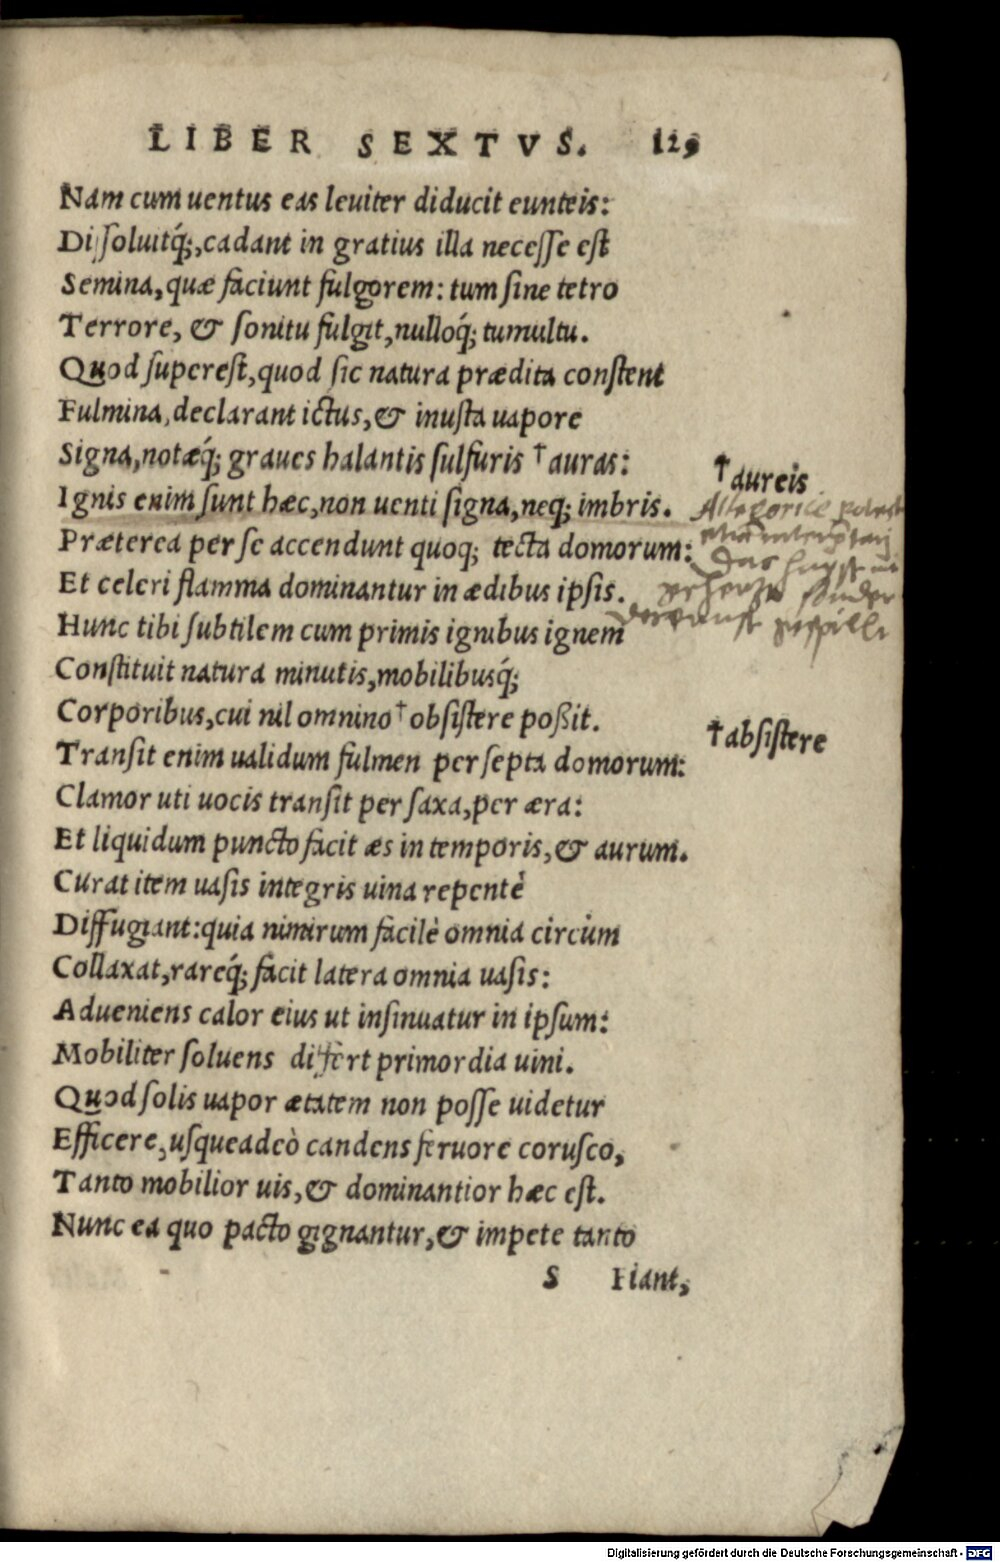 LIBER SEXTVS. 129
Nam cum uentus eas leuiter diducit eunteis:
Dissoluitq́;,cadant in gratius illa necesse est
Semina,quæ faciunt fulgorem: tum sine tetro
Terrore, & sonitu fulgit,nulloq́; tumultu.
Quod superest,quod sic natura prædita constent
Fulmina,declarant ictus,& inusta uapore
Signa,notæq́; graues halantis sulfuris †auras:
†aureis
Ignis enim sunt hæc,non uenti signa,neq; imbris.
Allegorice
Præterea per se accendunt quoq; tecta domorum:
Et celeri flamma dominantur in ædibus ipsis.
Hunc tibi subtilem cum primis ignibus ignem
Constituit natura minutis,mobilibusq́;
Corporibus,cui nil omnino †obsistere poßit.
†absistere
Transit enim ualidum fulmen per septa domorum:
Clamor uti uocis transit per saxa,per æra:
Et liquidum puncto facit æs in temporis,& aurum.
Curat item uasis integris uina repentè
Diffugiant:quia nimirum facilè omnia circùm
Collaxat,rareq́; facit latera omnia uasis:
Adueniens calor eius ut insinuatur in ipsum:
Mobiliter soluens differt primordia uini.
Quod solis uapor ætatem non posse uidetur
Efficere,usqueadeò candens feruore corusco,
Tanto mobilior uis,& dominantior hæc est.
Nunc ea quo pacto gignantur,& impete tanto
S Fiant,
Digitalisierung gefördert durch die Deutsche Forschungsgemeinschaft - DFG